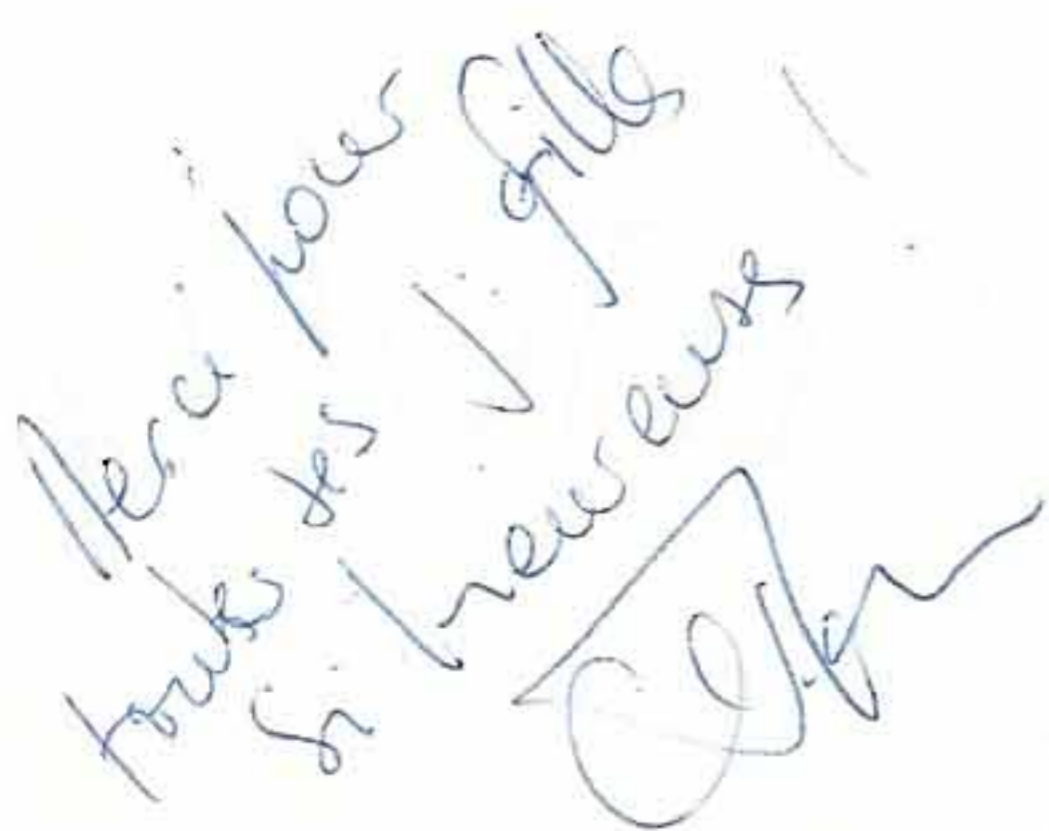 Merci pour
toutes ses j. filles
si heureuses !